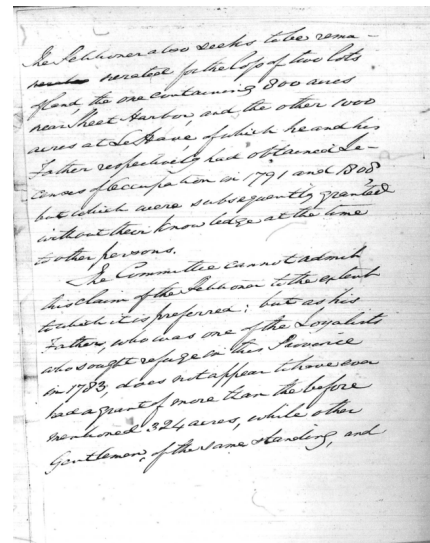 The Petitioner also seeks to be remu-
nerated for the loss of two lots
of land, the one containing 800 acres
near Sheet Harbor, and the other 1000
acres at LeHave of which he and his
Father respectively had obtained Li-
cences of Occupation in 1791 and 1808
but which were subsequently granted
without their knowledge at the time
to other persons.
The Committee cannot admit
this claim of the Petitioner to the extent
to which it is preferred; but as his
Father, who was one of the Loyalists
who sought refuge in this Province
in 1783, does not appear to have ever
had a grant of more than the before
mentioned 324 acres, while other
Gentlemen, of the same standing, and